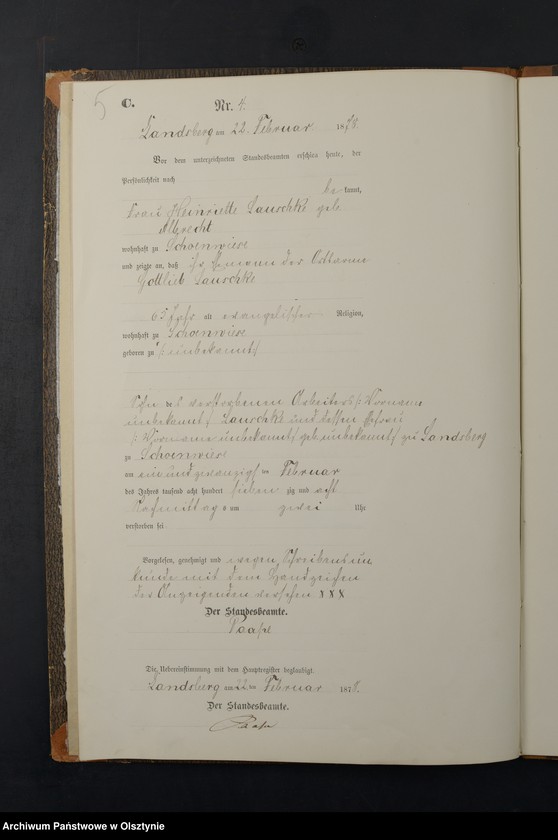 5
C.
Nr. 4.
Landsberg am 22. Februar 1878.
Vor dem unterzeichneten Standesbeamten erschien heute, der
Persönlichkeit nach
be kannt,
Frau Heinriette Lauschke geb.
Albrecht
wohnhaft zu Schoenwiese
und zeigte an, daß ihr Ehemann der Ortsarme
Gottlieb Lauschke
65 Jahr alt evangelischer Religion,
wohnhaft zu Schoenwiese
geboren zu (: unbekannt)
Sohn des verstorbenen Arbeiters (: Vorname
unbekannt) Lauschke und dessen Ehefrau
(: Vorname unbekannt) geb. unbekannt) zu Landsberg
zu Schoenwiese
am einundzwanzigsten Februar
des Jahres tausend acht hundert sieben zig und acht
Nachmittags um zwei Uhr
verstorben sei
Vorgelesen, genehmigt und wegen Schreibensun
kunde mit dem Handzeichen
der Anzeigenden versehen XXX
Der Standesbeamte.
Die Uebereinstimmung mit dem Hauptregister beglaubigt.
Landsberg am 22 ten Februar 1878.
Der Standesbeamte.
Archiwum Państwowe w Olsztynie